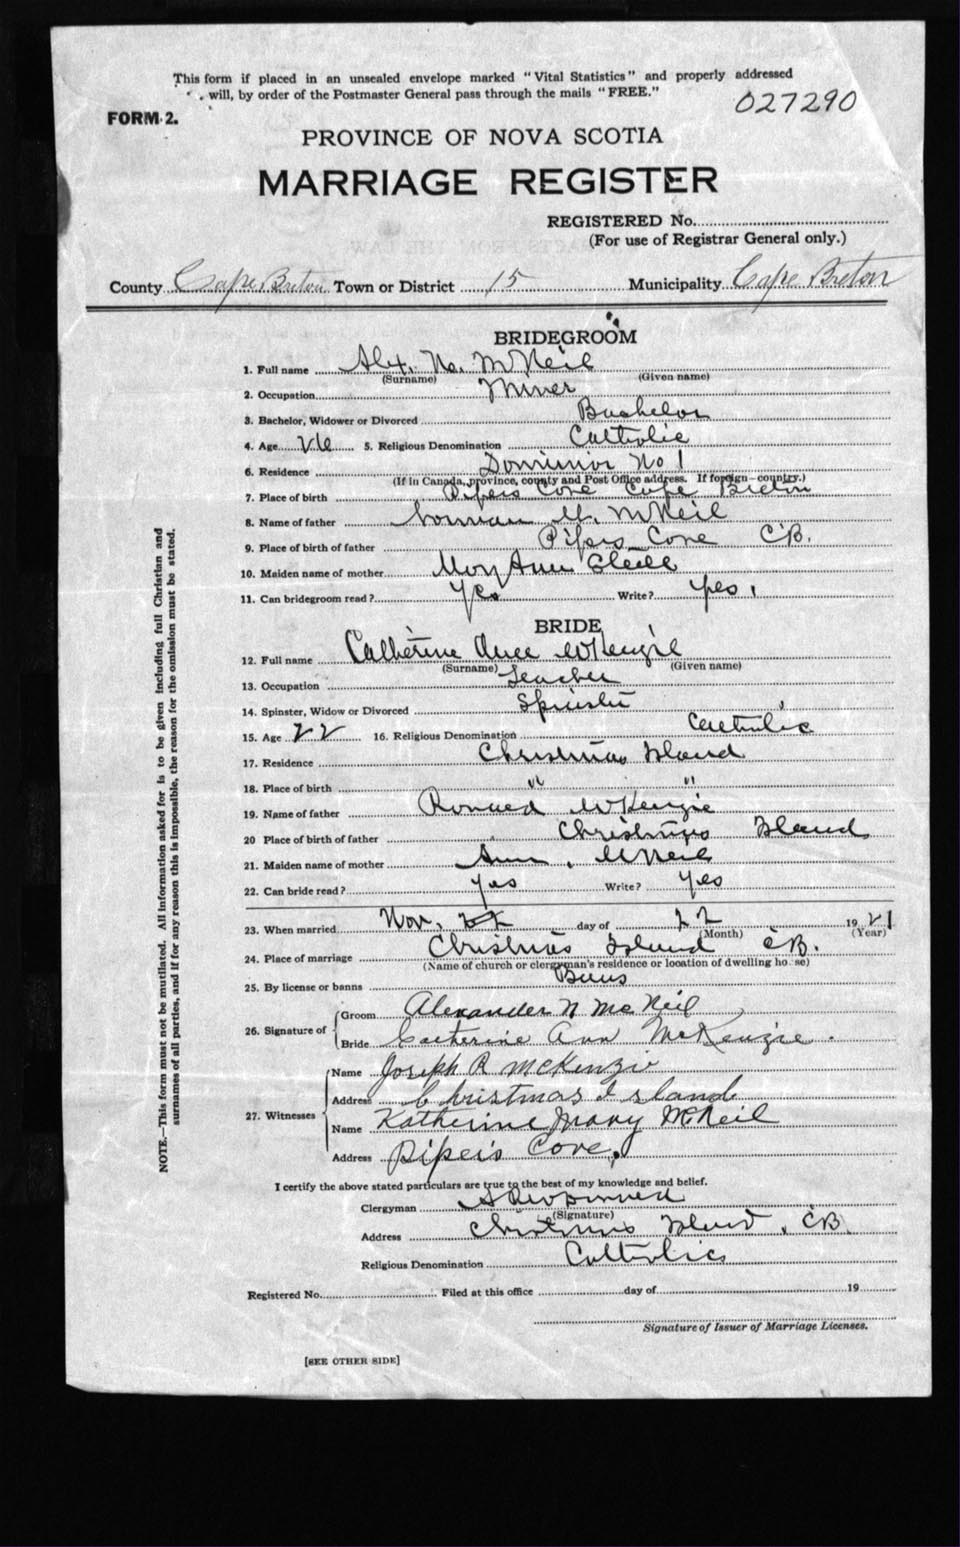 This form if placed in an unsealed envelope marked "Vital Statistics" and properly addressed
will, by order of the Postmaster General pass through the mails "FREE."
027290
FORM 2.
PROVINCE OF NOVA SCOTIA
MARRIAGE REGISTER
REGISTERED No.
(For use of Registrar General only.)
County Cape Breton Town or District 15 Municipality Cape Breton
BRIDEGROOM
1. Full name Alx. McNeil
(Surname) (Given name)
2. Occupation Miner
3. Bachelor, Widower or Divorced Bachelor
4. Age 26 5. Religious Denomination Catholic
6. Residence Dominion No 1
(If in Canada, province, county and Post Office address. If foreign—country.)
7. Place of birth Pipers Cove Cape Breton
8. Name of father Norman McNeil
9. Place of birth of father Pipers Cove CB.
10. Maiden name of mother Mary Ann
11. Can bridegroom read? Yes Write? Yes.
BRIDE
12. Full name Catherine McKenzie
(Surname) (Given name)
13. Occupation Teacher
14. Spinster, Widow or Divorced Spinster
15. Age 22 16. Religious Denomination Catholic
17. Residence Christmas Island
18. Place of birth " "
19. Name of father Ronald McKenzie
20 Place of birth of father Christmas Island
21. Maiden name of mother Ann McNeil
22. Can bride read? Yes Write? Yes
23. When married Nov. 22 day of 22 1921
(Month) (Year)
24. Place of marriage Christmas Island CB.
(Name of church or clergyman's residence or location of dwelling house)
25. By license or banns Banns
26. Signature of
Groom Alexander N McNeil
Bride Catherine Ann McKenzie.
27. Witnesses
Name Joseph R McKenzie
Address Christmas Island.
Name Katherine Mary McNeil
Address Piper's Cove.
I certify the above stated particulars are true to the best of my knowledge and belief.
Clergyman
(Signature)
Address Christmas Island, CB.
Religious Denomination Catholic
Registered No. Filed at this office day of 19
Signature of Issuer of Marriage Licenses.
[SEE OTHER SIDE]
NOTE.—This form must not be mutilated. All information asked for is to be given including full Christian and
surnames of all parties, and if for any reason this is impossible, the reason for the omission must be stated.